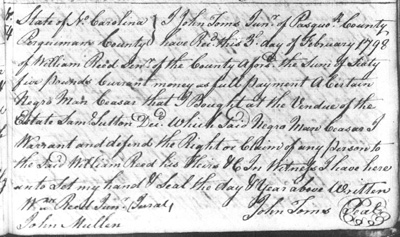 State of No. Carolina { I John Toms Junr. of Pasquok. County
Perquiman County { have Recd. this 3d. day of February 1798
of William Reed Senr. of the County Aford. the Sum of Sixty
five Pounds Currant money as full payment A Certain
Negro Man Ceasar that I Bought at the Vendue of the
Estate Saml. Sutton Decd. Which Said Negro Man Ceasar I
Warrant and defend the Right or Claim of any person to
the Said William Reed his Heirs &C In Witness I have here
unto Set my hand & Seal the day & Year above Written
Wm. Reed Junr. (Jurat) John Toms (Seal)
John Mullen